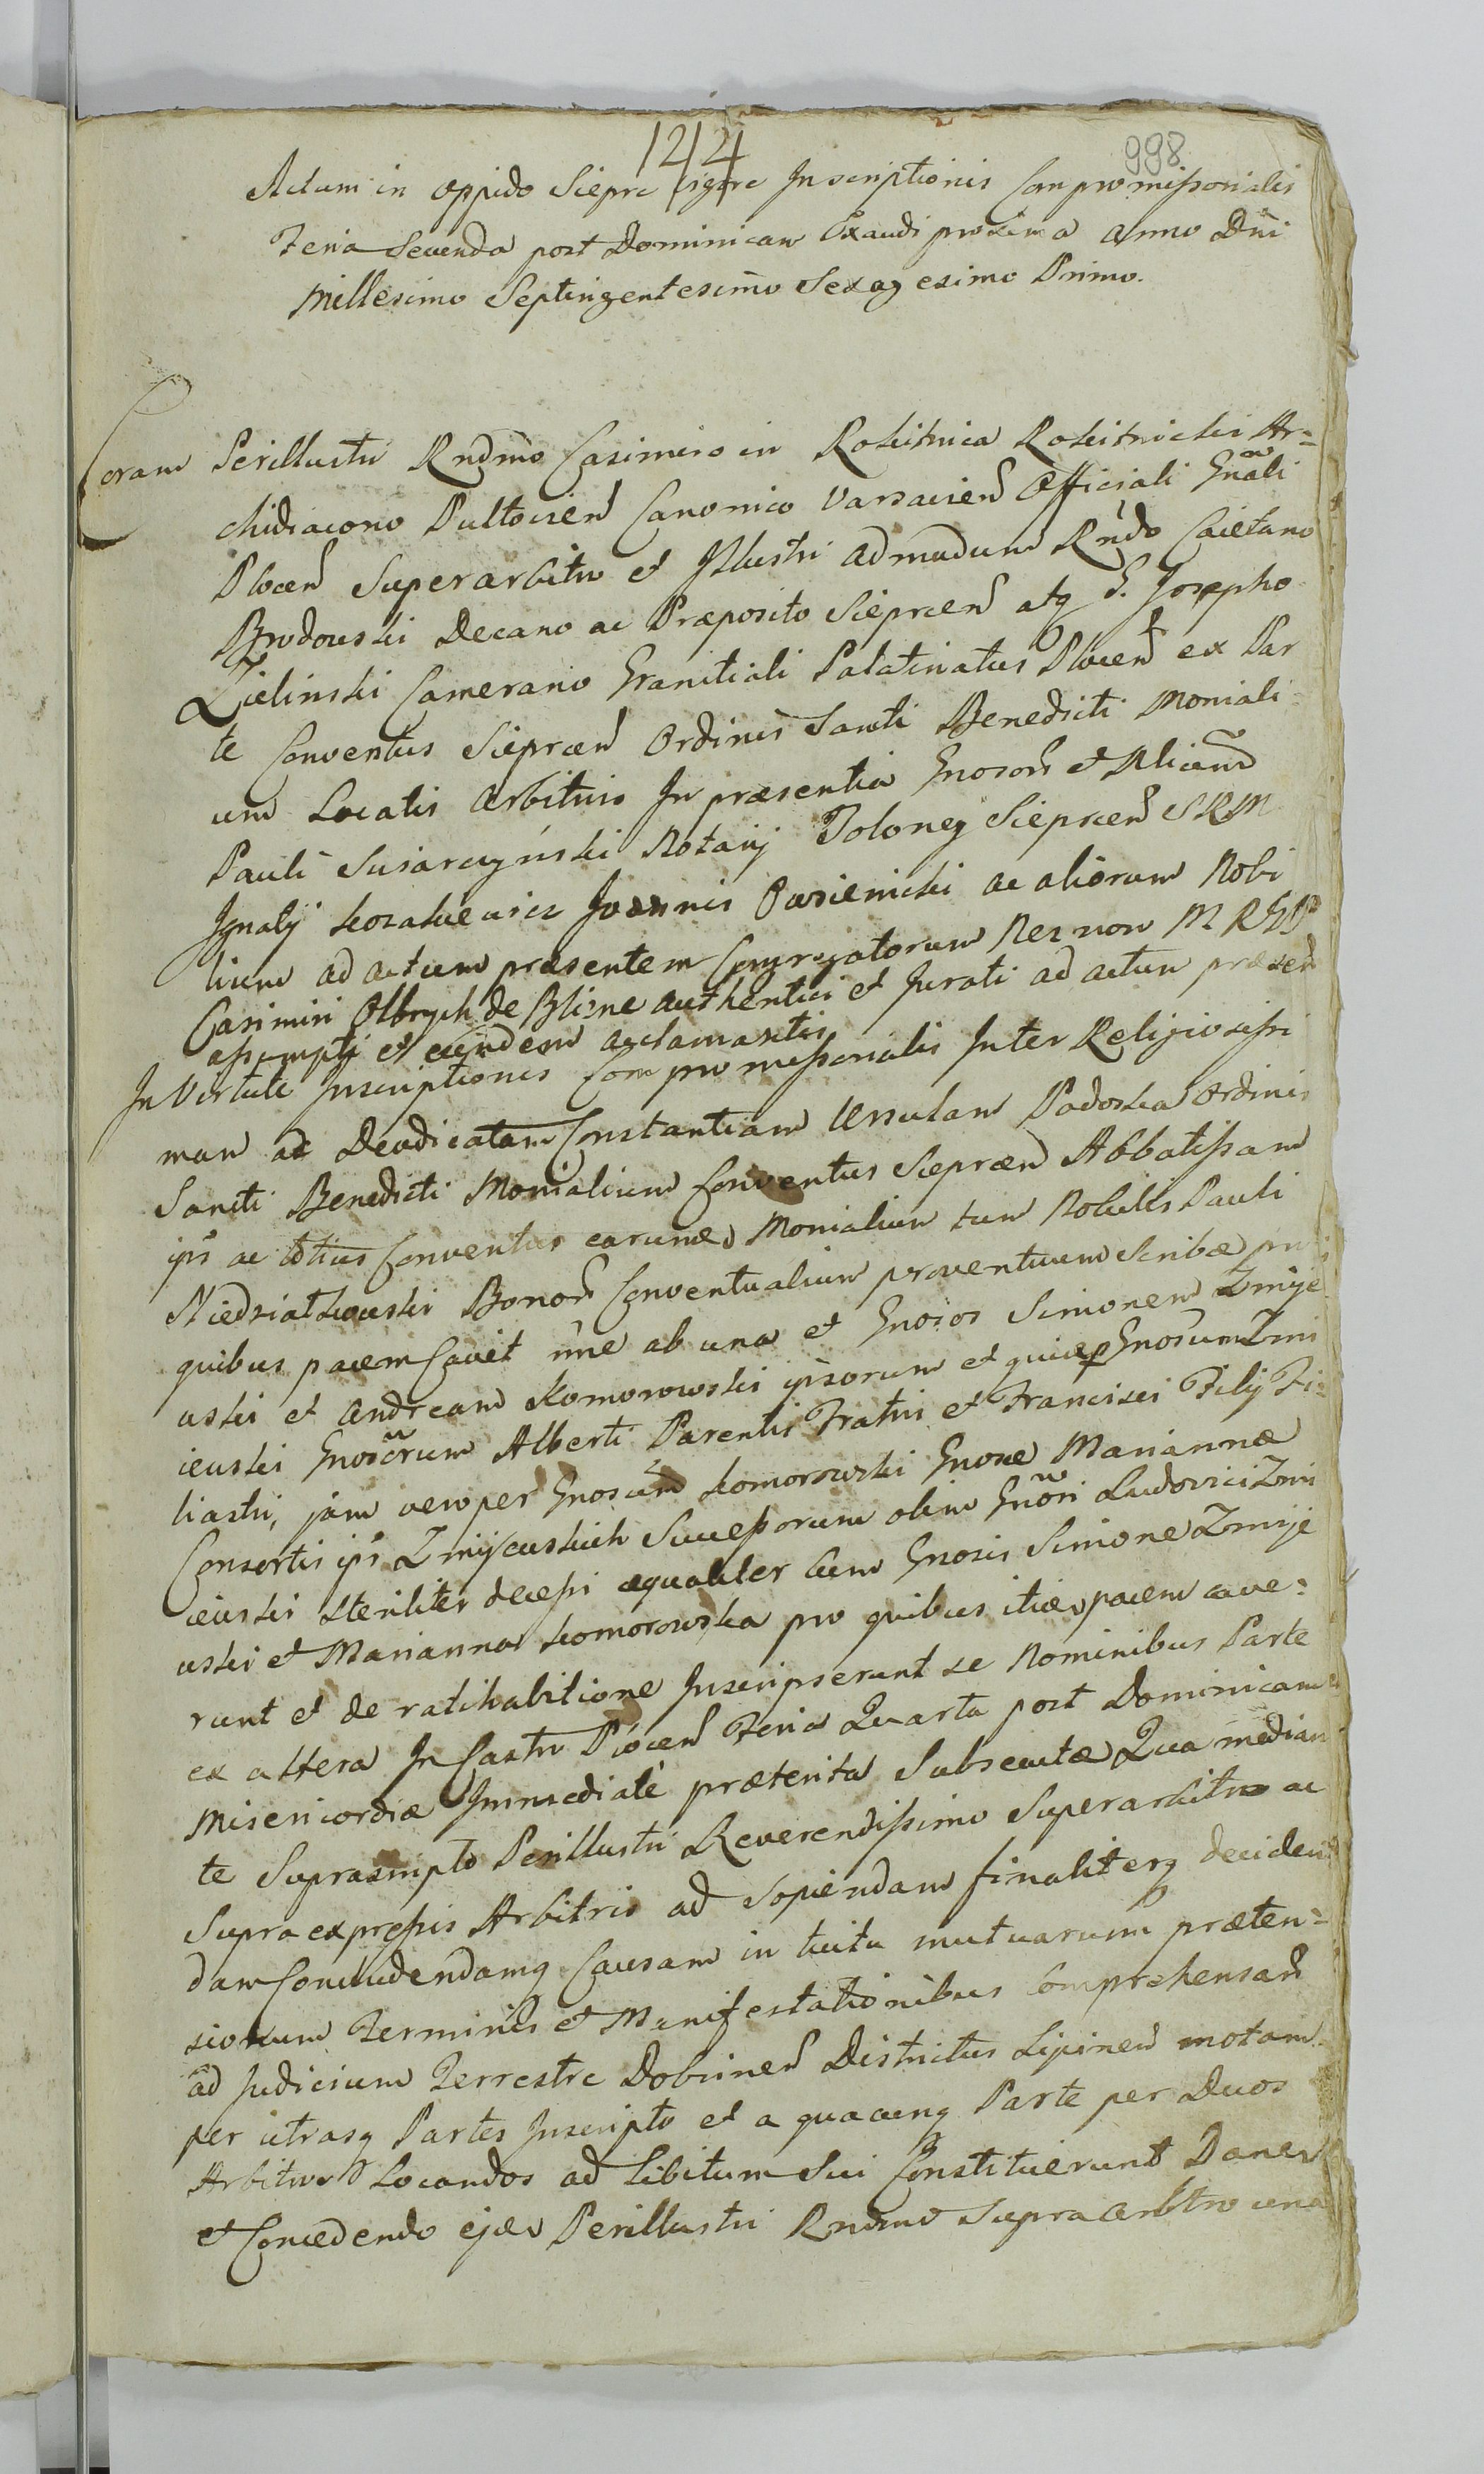 1214
998
Actum in oppido Siepre vigore Inscriptionis Compromissorialis
Feria Secunda post Dominicam Exaudi proxima Anno Dñi
Millesimo Septingentesimo Sexagesimo Primo.
Coram Perillustri Rndmo Casimiro in Rokitnica Rokitnicki Ar=
chidiacono Pultovien Canonico Varsavien Officiali Gnãli
Plocen Superarbitro et Illustri Admodum Rndo Caietano
Brodowski Decano ac Præposito Sieprcen atq G. Josepho
Zielinski Camerario Granitiali Palatinatus Plocen ex Par
te Conventus Sieprcen Ordinis Sancti Benedicti Moniali
um Locatis Arbitris In præsentia Gnosor et
Pauli Notarij Sieprcen SRM
Ignatij Joannis ac aliorum Nobi
lium ad actum præsentem Congregatorum Nec non M R
Casimiri Olbrych de Blizne Authentici et Jurati ad actum præsen
assumpti et eundem acclamantis
In Virtute Inscriptionis Compromissorialis Inter Religiosissi
mam ac Deodicatam Constantiam Ursulam Padoska Ordinis
Sancti Benedicti Monialium Conventus Sieprcen Abbatissam
ips ac totius Conventus earumd Monialium tum Nobilis Pauli
Niedziałkowski Bonor Conventualium proventuum Scribæ pro
quibus pacem Cavet ab una et Gnosos Simonem Zmije
uski et Andream Komorowski ipsorum et Gnosum Zmi
ieuski Gnosorum Alberti Parentis Fratris et Francisci Filij Fi=
liastri, jam vero per Gnosum Komorowski Gnosæ Mariannæ
Consortis ips Zmijeuskich Successorum olim Gnõsi Ludovici Zmi
ieuski steriliter decessi æqualiter cum Gnosis Simone Zmije
uski et Marianna Komorowska pro quibus pacem cave=
runt et de ratihabitione Inscripserunt se Nominibus Parte
ex altera In Castro Plocen Feria Quarta post Dominicam
Misericordiæ Immediate præterita Subsecutæ Qua median
te Suprascripto Perillustri Reverendissimo Superarbitro ac
Supra expressis Arbitris ad sopiendam finaliterq deciden
dam Concludendamq Causam in tuitu mutuarum præten=
sionum Terminis et Manifestationibus Comprehensam
ad Judicium Terrestre Dobrinen Districtus Lipinen motam
per utrasq Partes Inscripto et a quacunq Parte per Duos
Arbitros Locandos ad Libitum Sui Constituerunt Danes
et Concedendo ejd Perillustri Rndmo Supraarbtro una